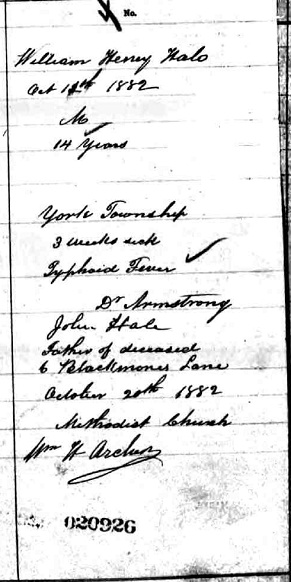 No.
William Henry Hale
Oct 1882
M
14 Years
York Township
3 weeks sick
Typhoid Fever
Dr Armstrong
John Hale
Father of deceased
6 Lane
October 20th 1882
Methodist Church
Wm H Archer
020926